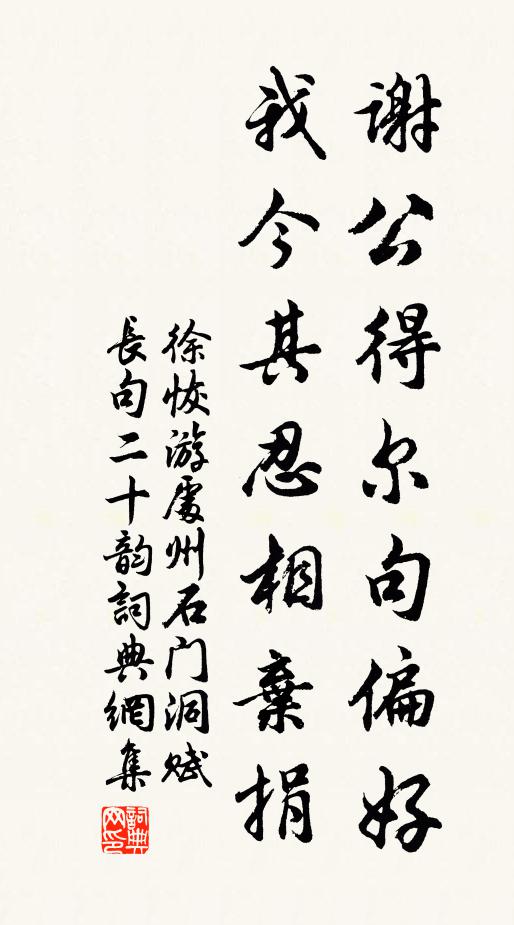 谢公得尔句偏好
我今其忍相棄捐
徐恢游處州石门洞赋
長句二十韵詞典網集
詞典
网印